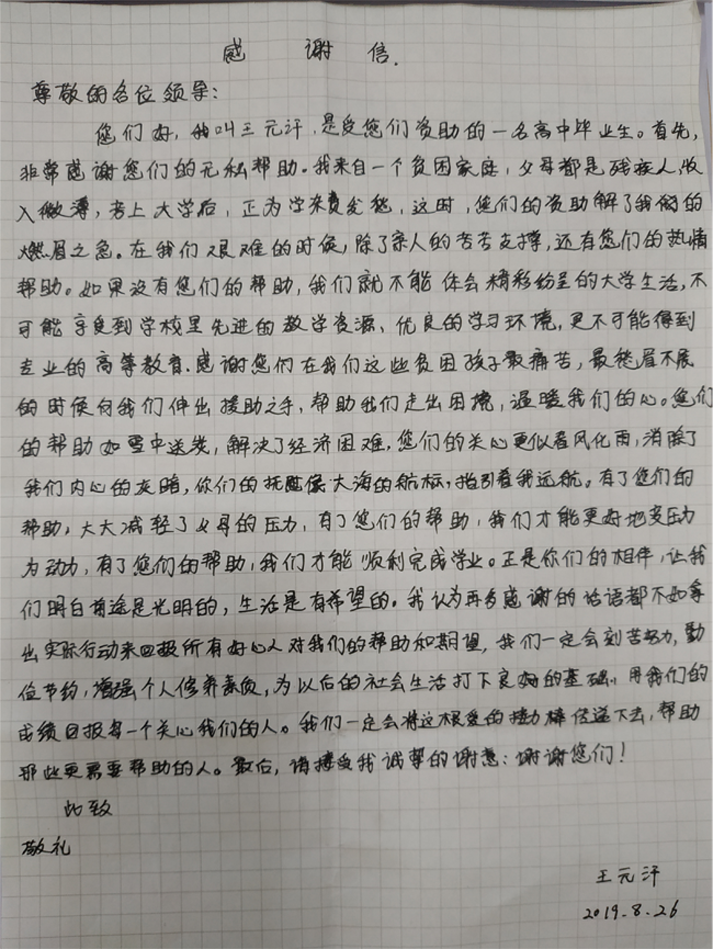 感 谢 信.
尊敬的各位领导：
您们好，我叫王元汗，是受您们资助的一名高中毕业生。首先，
非常感谢您们的无私帮助。我来自一个贫困家庭，父母都是残疾人，收
入微薄，考上大学后，正为学杂费发愁，这时，您们的资助解了我们的
燃眉之急。在我们艰难的时候，除了亲人的苦苦支撑，还有您们的热情
帮助。如果没有您们的帮助，我们就不能体会精彩纷呈的大学生活，不
可能享受到学校里先进的教学资源、优良的学习环境，更不可能得到
专业的高等教育.感谢您们在我们这些贫困孩子最痛苦，最愁眉不展
的时候向我们伸出援助之手，帮助我们走出困境，温暖我们的心。您们
的帮助如雪中送炭，解决了经济困难，您们的关心更似春风化雨，消除了
我们内心的灰暗，你们的抚慰像大海的航标，指引着我远航。有了您们的
帮助，大大减轻了父母的压力，有了您们的帮助，我们才能更好地变压力
为动力，有了您们的帮助，我们才能顺利完成学业。正是你们的相伴，让我
们明白前途是光明的，生活是有希望的。我认为再多感谢的话语都不如拿
出实际行动来回报所有好心人对我们的帮助和期望，我们一定会刻苦努力，勤
俭节约，增强个人修养素质，为以后的社会生活打下良好的基础，用我们的
成绩回报每一个关心我们的人。我们一定会将这根爱的接力棒传递下去，帮助
那些更需要帮助的人。最后，请接受我诚挚的谢意：谢谢您们！
此致
敬礼
王元汗
2019.8.26